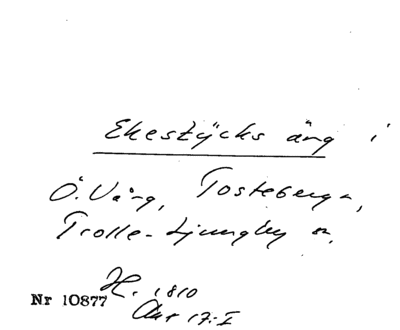 Ekestycks äng i
Ö. Vång, Tosteberga,
Trolle-Ljungby sn.
H. 1810
Nr 10877
Akt 17:I